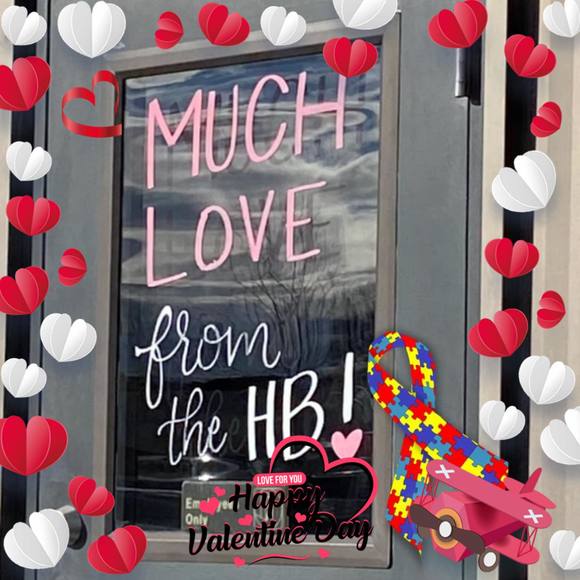 MUCH
LOVE
from
the HB!
Employees
Only
LOVE FOR YOU
Happy
Valentine Day